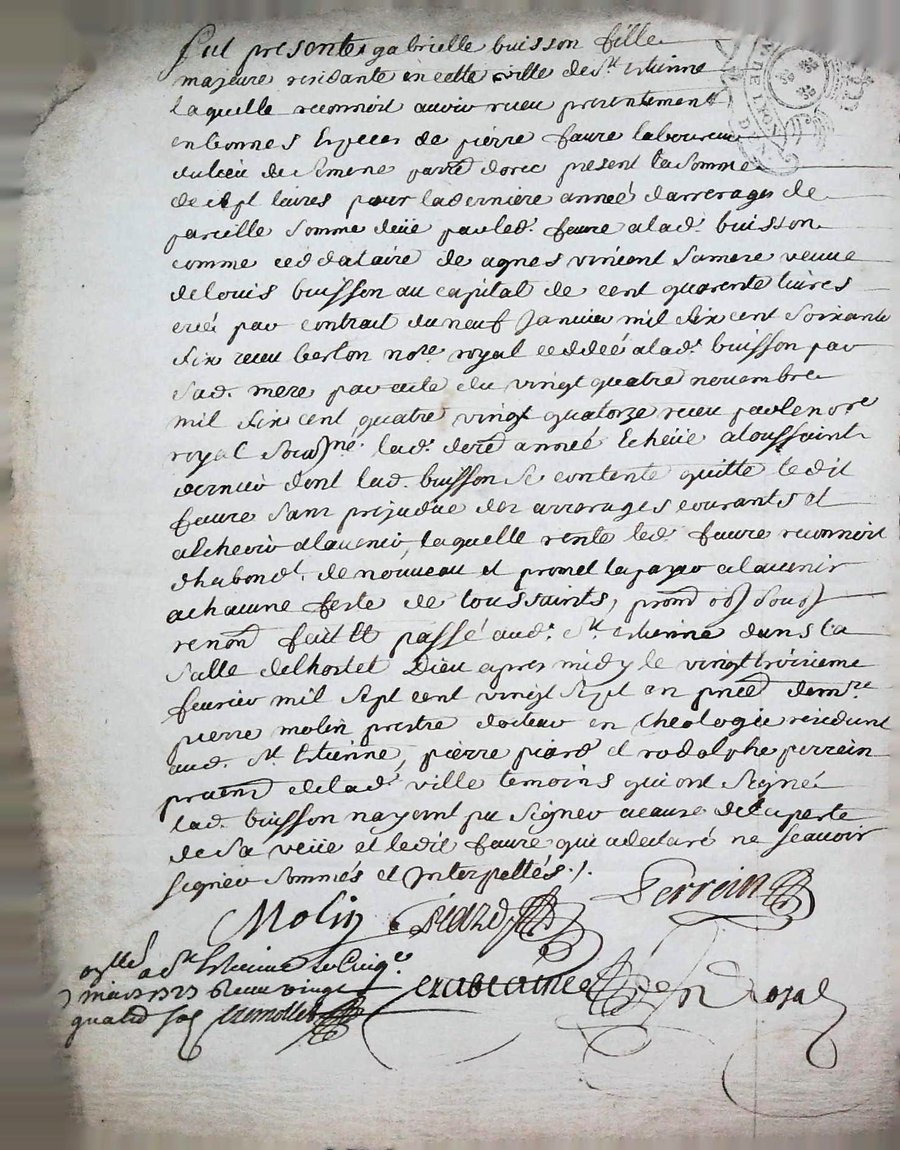 fut presente gabrielle buisson fille
majeure residante en cette ville de St etienne
laquelle reconnoit avoir receu presentement
en bonnes Especes de pierre faure laboureur
du lieu de parre dorec present la somme
de sept livres pour laderniere année darrerages de
pareille somme deüe parled. faure alad. buisson
comme ceddataire de agnes vincent samere veuve
delouis buisson au capital de cent quarente livres
creé par contrat duneuf Janvier mil six cent soixante
six receu berlon nore royal ceddeé alad. buisson par
sad. mere par acte du vingt quatre novembre
mil six cent quatre vingt quatorze receu parlenore
royal soussné. lad. dere année Echeüe atoussaint
dernier dont lad. buisson se contente quitte ledit
faure sans prejudice des arrerages courants et
aEcheoir alavenir, laquelle rente led. faure reconnoit
dhabondt. de nouveau et promet lapayer alavenir
achacune feste de toussaints, prom obl sous
renon fait Et passé aud. St etienne dans la
salle delhostel Dieu apres midy le vingt troisieme
fevrier mil sept cent vingt sept en pnce demre
pierre molin prestre docteur en theologie residant
aud. St Etienne, pierre piard et rodolphe perrein
pratn delad. ville temoins qui ont signé
lad. buisson nayant pu signer acause delaperte
de sa veüe et ledit faure qui adeclaré ne scavoir
signer sommés et Interpellés ./.
Molin piard Perrein
a St Etienne le Cinqe
mars 1727 Receu vingt
quatre sols
nore Royal